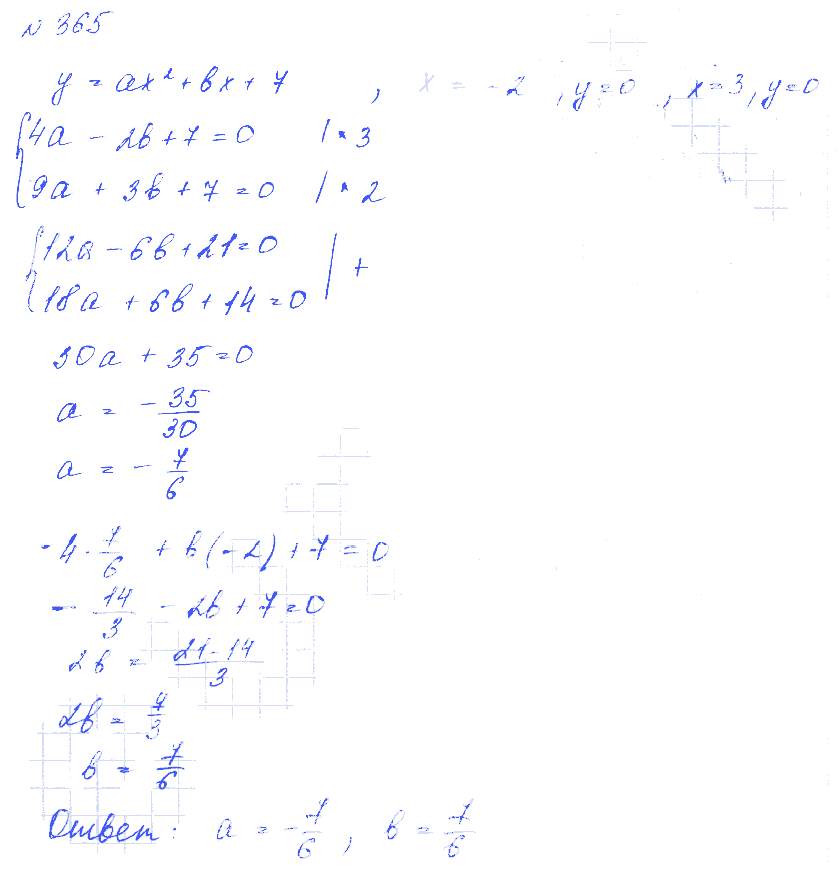 № 365
y = ax² + bx + 7 , x = -2 , y=0 , x=3, y=0
{4a - 2b + 7 = 0 | * 3
{9a + 3b + 7 = 0 | * 2
{12a - 6b + 21 = 0
{18a + 6b + 14 = 0 | +
30a + 35 = 0
a = - 35/30
a = - 7/6
-4 · 7/6 + b(-2) + 7 = 0
- 14/3 - 2b + 7 = 0
2b = 21-14/3
2b = 7/3
b = 7/6
Ответ: a = -7/6, b = 7/6